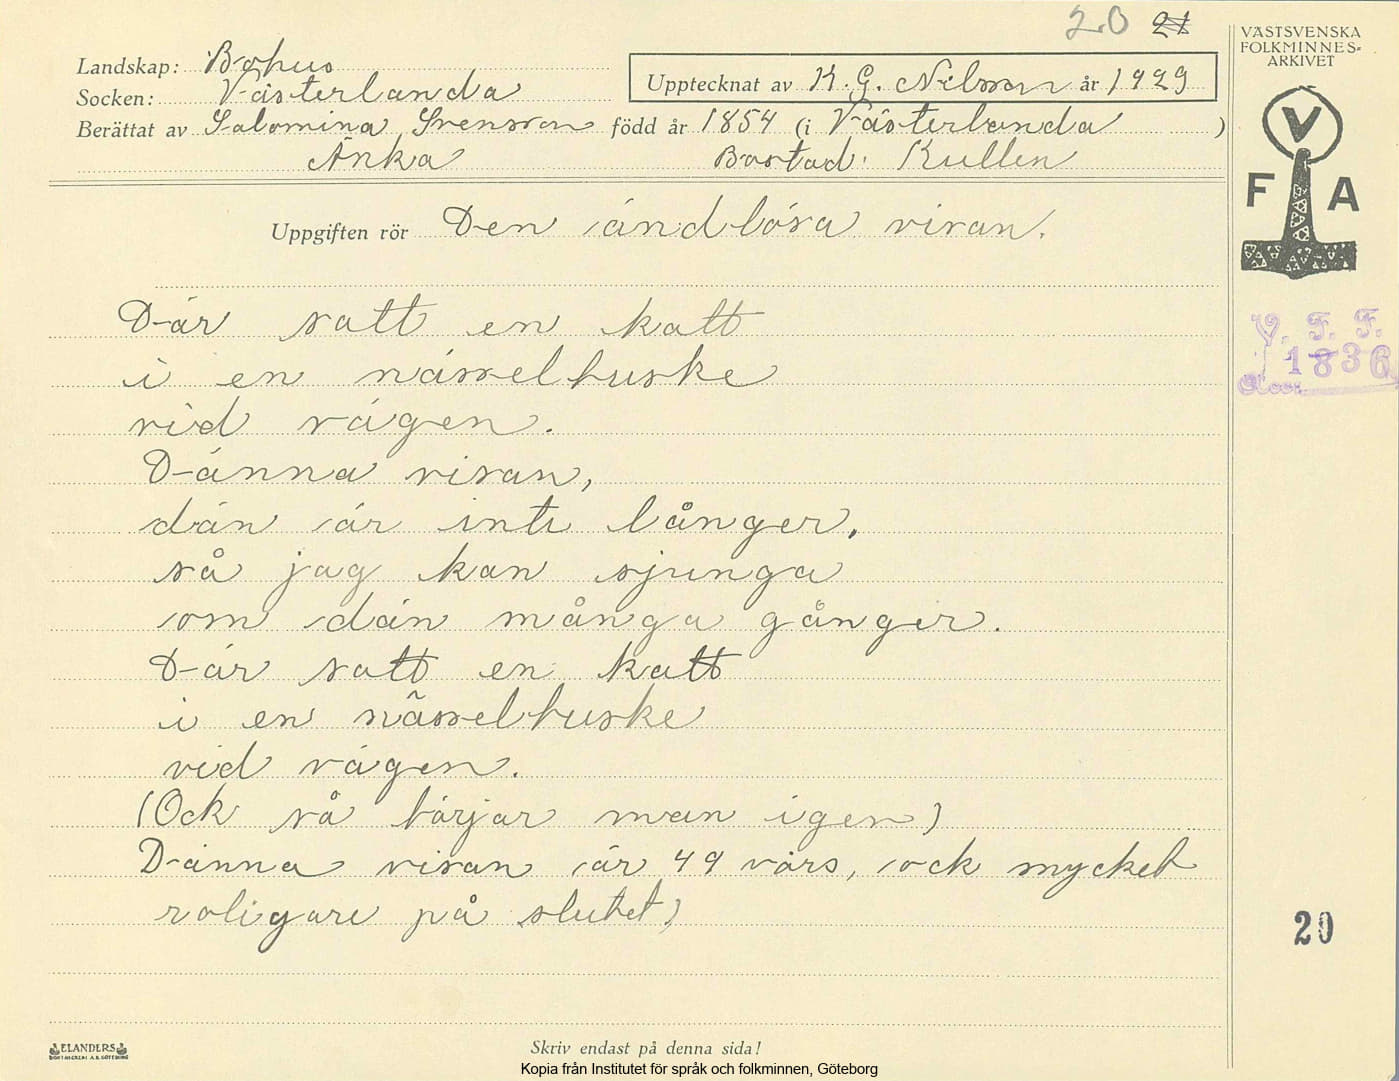 20 21
VÄSTSVENSKA
FOLKMINNES=
ARKIVET
Landskap: Bohus
Socken: Västerlanda
Upptecknat av K. G. Nilsson år 1929
Berättat av Salomina Svensson född år 1854 (i Västerlanda)
Änka Bostad: Kullen
V
F A
Uppgiften rör Den ändlösa visan.
V. F. F.
1836
Där satt en katt
i en nässelbuske
vid vägen.
Dänna visan,
dän är inte långer,
så jag kan sjunga
om dän många gånger.
Där satt en katt
i en nässelbuske
vid vägen.
(Ock så börjar man igen)
Dänna visan är 49 värs, ock mycket
roligare på slutet)
20
ELANDERS
BOKTRYCKERI A.B. GÖTEBORG
Skriv endast på denna sida!
Kopia från Institutet för språk och folkminnen, Göteborg